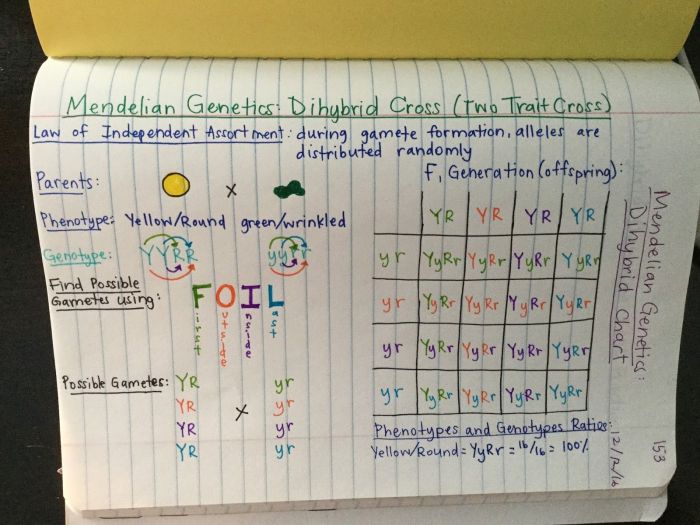 Mendelian Genetics: Dihybrid Cross (Two Trait Cross)
Law of Independent Assortment: during gamete formation, alleles are
distributed randomly
Parents: x
Phenotype: Yellow/Round green/wrinkled
Genotype: YYRR yyrr
Find Possible
Gametes using: FOIL
First
Outside
Inside
Last
Possible Gametes: YR yr
YR x yr
YR yr
YR yr
F1 Generation (offspring):
YR YR YR YR
yr YyRr YyRr YyRr YyRr
yr YyRr YyRr YyRr YyRr
yr YyRr YyRr YyRr YyRr
yr YyRr YyRr YyRr YyRr
Phenotypes and Genotypes Ratios:
Yellow/Round = YyRr = 16/16 = 100%
Mendelian Genetics:
Dihybrid Chart
153